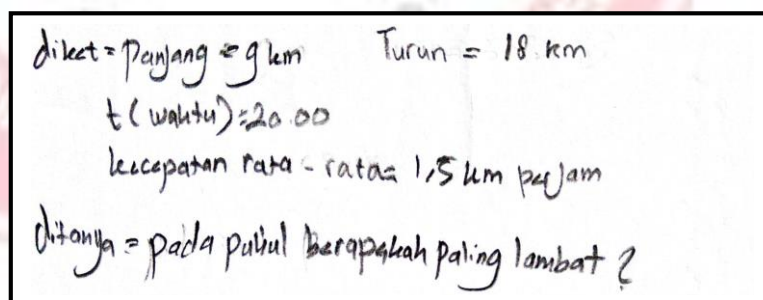 diket = Panjang = 9 km Turun = 18 km
t (waktu) = 20.00
kecepatan rata-rata = 1,5 km perjam
ditanya = pada pukul berapakah paling lambat ?